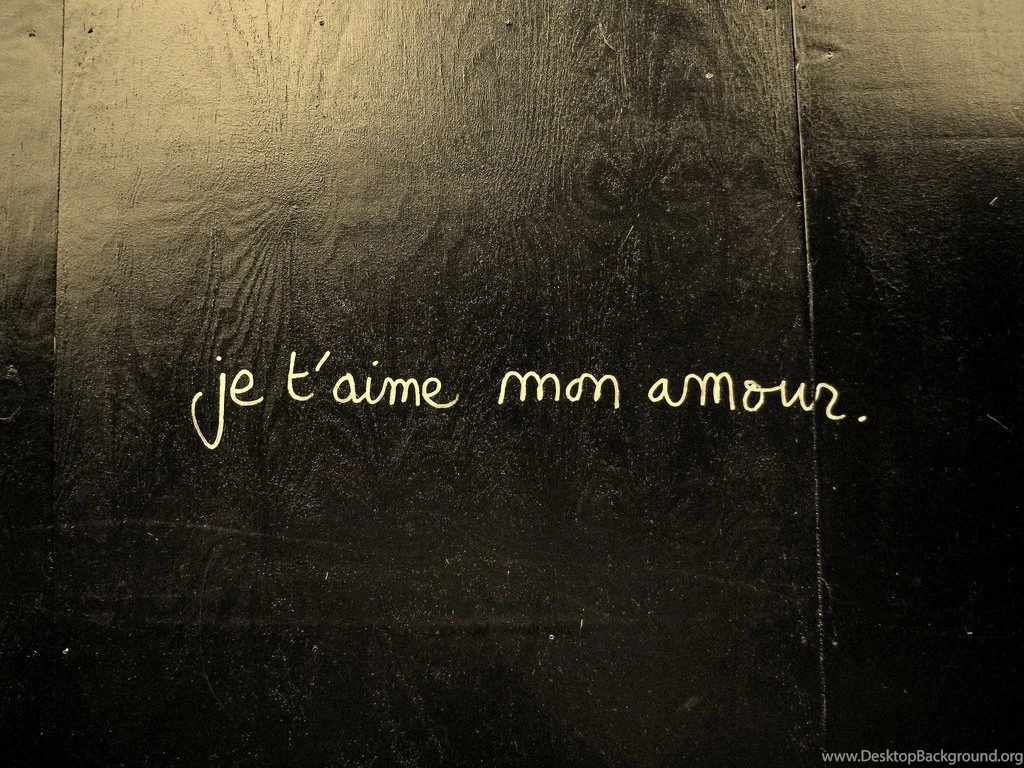 je t'aime mon amour.
www.DesktopBackground.org